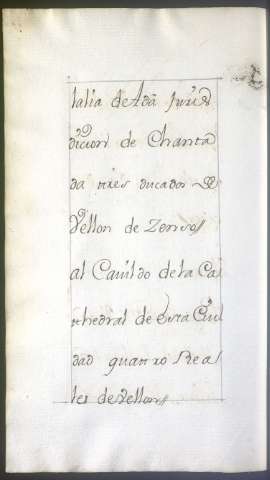 lalia de Adá Juris
dicion de Chanta
da tres ducados de
Vellon de Zensos
al Cavildo de la Ca
thedral de esta Ciu
dad quatro Rea
les de vellon